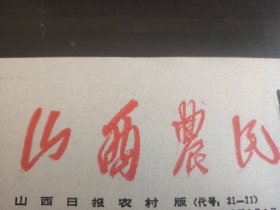 山西農民
山西日报农村版(代号:21—11)